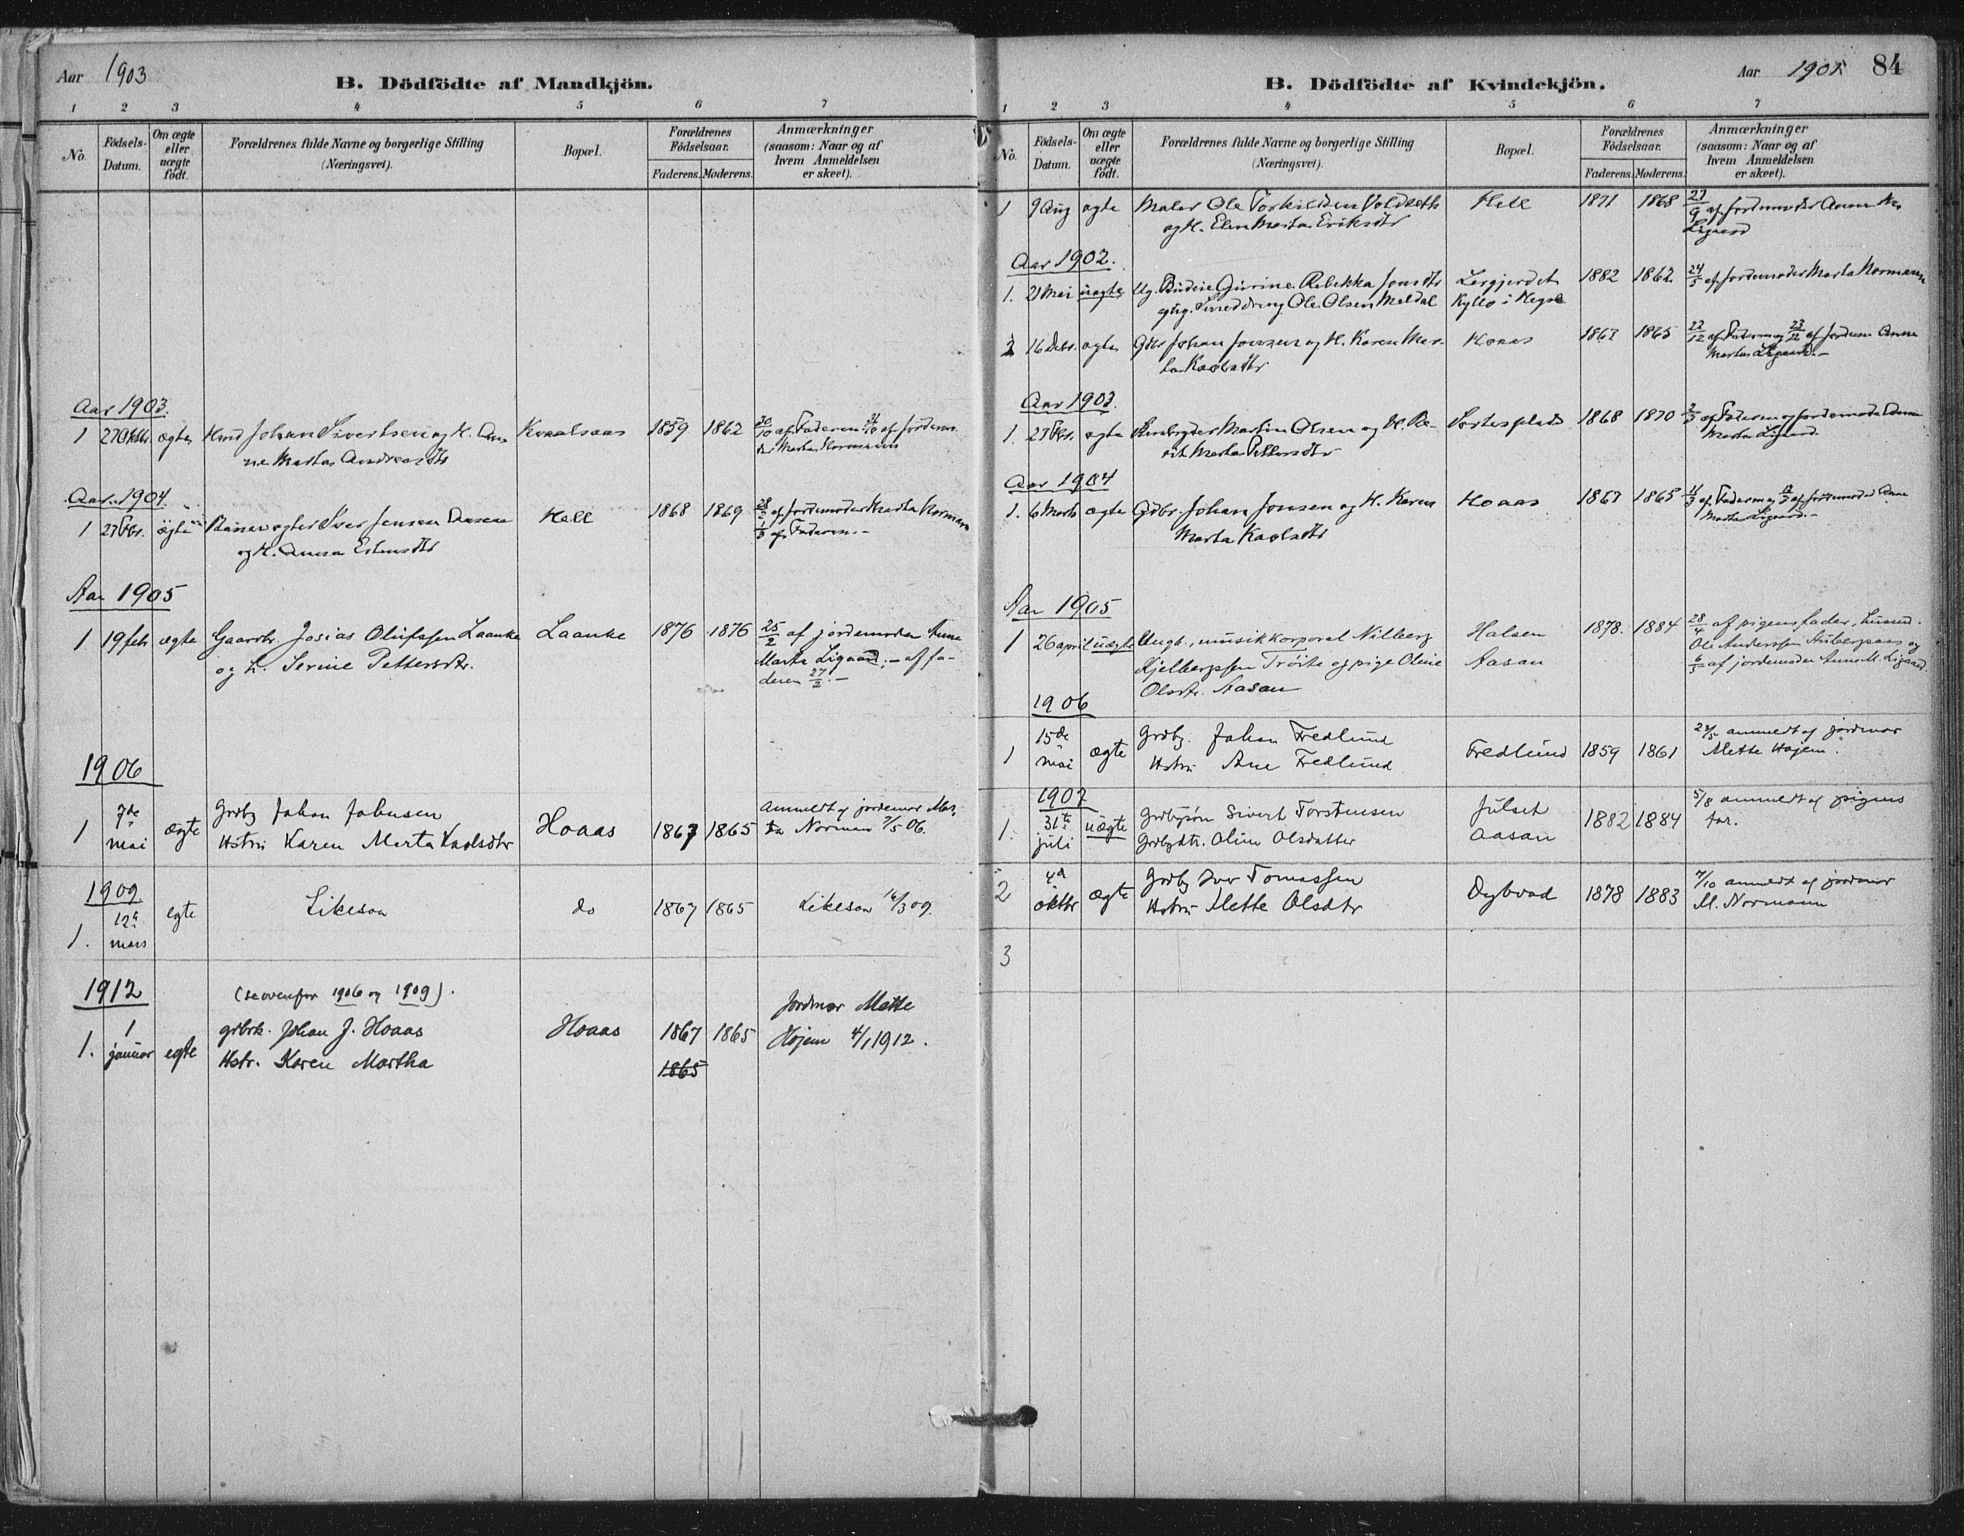 Aar 1903
B. Dödfödte af Mandkjön.
1 2 3 4 5 6 7
No.
Födsels-Datum.
Om ægte eller uægte födt.
Forældrenes fulde Navne og borgerlige Stilling (Næringsvei).
Bopæl.
Forældrenes Födselsaar.
Faderens. Moderens.
Anmærkninger (saasom: Naar og af hvem Anmeldelsen er skeet).
Aar 1903.
1 27 Oktbr. ægte Johan Sivertsen og H. An- 1859 1862 30/10 af Faderen af Jordemo-
ne Marta Andreasdtr der Marta Normann
Aar 1904.
1 27 Fbr. ægte Iver Jensen Hell 1868 1869 28/2 af Jordemoder Marta Normann
og H. Anna Estensdtr 1/3 af Faderen.-
Aar 1905
1 19 febr ægte Gaardbr. Josias Olufssen Laanke Laanke 1876 1876 25/2 af jordemoder Anne
og H. Serine Pettersdtr. Marta Ligaard. - af fa-
deren 27/2.-
1906
1 7de mai ægte Grdbg Johan Johnsen Hoaas 1867 1865 Anmeldt af jordemor Mar-
Hstru Karen Marta Karlsdtr ta Norman 7/5 06.
1909
1. 12te mars egte Likesaa do 1867 1865 Likesaa 16/3 09.
1912 (se ovenfor 1906 og 1909).
1. 1 januar egte grbrk. Johan J. Hoaas Hoaas 1867 1865 Jordmor Mette
Hstr. Karen Martha 1865 Højem 4/1 1912.
Aar 1901. 84
B. Dödfödte af Kvindekjön.
1 2 3 4 5 6 7
No.
Födsels-Datum.
Om ægte eller uægte födt.
Forældrenes fulde Navne og borgerlige Stilling (Næringsvei).
Bopæl.
Forældrenes Födselsaar.
Faderens. Moderens.
Anmærkninger (saasom: Naar og af hvem Anmeldelsen er skeet).
1 9 Aug ægte Maler Ole Torkildsen Voldseth Hell 1871 1868 27/9 af Jordemoder Anne Ma
og H. Elen Marta Eriksdtr Ligaard
Aar 1902.
1. 21 Mai uægte Ug. Budeie Gurine Rebekka Jonsdtr 1882 1862 24/5 af Jordemoder Marta Normann
og Ug. Ole Olsen Meldal Kyllo i Hegre
2 16 Debr. ægte Gbr Johan Jonsen og H. Karen Mar- Hoaas 1867 1865 22/12 af Faderen og 23/12 af Jordem Anne
ta Karlsdtr Marta Ligaard.-
Aar 1903.
1. 27 Fbr. ægte Martin Olsen og H. Be- 1868 1870 2/3 af Faderen og Jordemoder Anne
rit Marta Pettersdtr Marta Ligaard.
Aar 1904
1. 6 Marts ægte Gdbr. Johan Jonsen og H. Karen Hoaas 1867 1865 11/3 af Faderen og af Jordemoder Anne
Marta Karlsdtr Marta Ligaard.-
Aar 1905
1 26 april uægte Ungk., musikkorporal Nilberg Halsen 1878. 1884 28/4 af pigens fader, husmd.
Kjelbergssen Trøite og pige Oline Aasan Ole Anderssen og
Olsdtr. Aasan 6/5 af jordemoder Anne M. Ligaard.
1906
1 15de mai ægte Grdbg. Johan Fredlund Fredlund 1859 1861 anmeldt af jordmor
Hstru Ane Fredlund Mette Højem.
1907
1. 31te juli uægte Grdbrsøn Sivert Torstensen Julset 1882 1884 5/8 anmeldt af pigens
Grdbgdtr. Oline Olsdatter Aasan far.
2 4d oktbr ægte Grdbg Iver Tomassen Dybvad 1878 1883 7/10 anmeldt af jordmor
Hstru Mette Olsdtr M. Normann
3